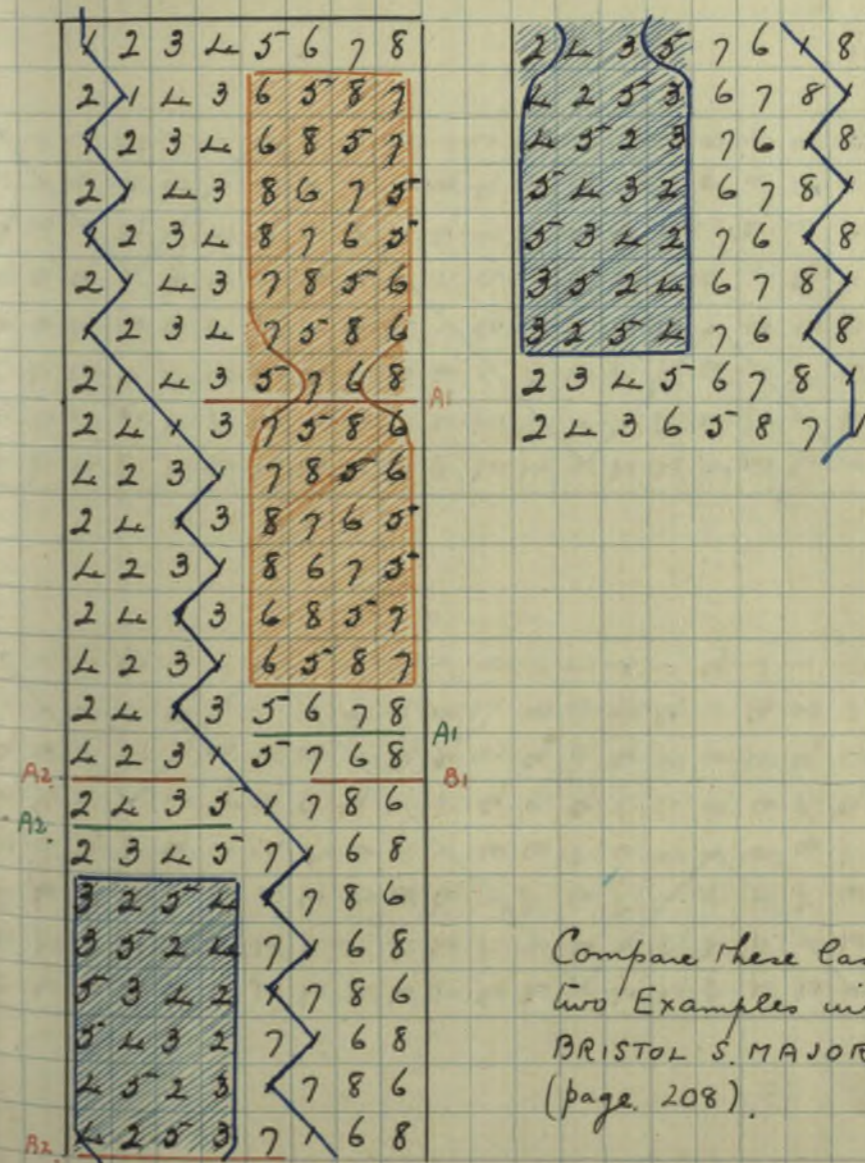 1 2 3 4 5 6 7 8
2 1 4 3 6 5 8 7
1 2 3 4 6 8 5 7
2 1 4 3 8 6 7 5
1 2 3 4 8 7 6 5
2 1 4 3 7 8 5 6
1 2 3 4 7 5 8 6
2 1 4 3 5 7 6 8 A1
2 4 1 3 7 5 8 6
4 2 3 1 7 8 5 6
2 4 1 3 8 7 6 5
4 2 3 1 8 6 7 5
2 4 1 3 6 8 5 7
4 2 3 1 6 5 8 7
2 4 1 3 5 6 7 8 A1
4 2 3 1 5 7 6 8
A2 B1
2 4 3 5 1 7 8 6
A2.
2 3 4 5 7 1 6 8
3 2 5 4 1 7 8 6
3 5 2 4 7 1 6 8
5 3 4 2 1 7 8 6
5 4 3 2 7 1 6 8
4 5 2 3 1 7 8 6
B2 4 2 5 3 7 1 6 8
2 4 3 5 7 6 1 8
4 2 5 3 6 7 8 1
4 5 2 3 7 6 1 8
5 4 3 2 6 7 8 1
5 3 4 2 7 6 1 8
3 5 2 4 6 7 8 1
3 2 5 4 7 6 1 8
2 3 4 5 6 7 8 1
2 4 3 6 5 8 7 1
Compare these
two Examples
BRISTOL S. MAJOR
(page. 208).